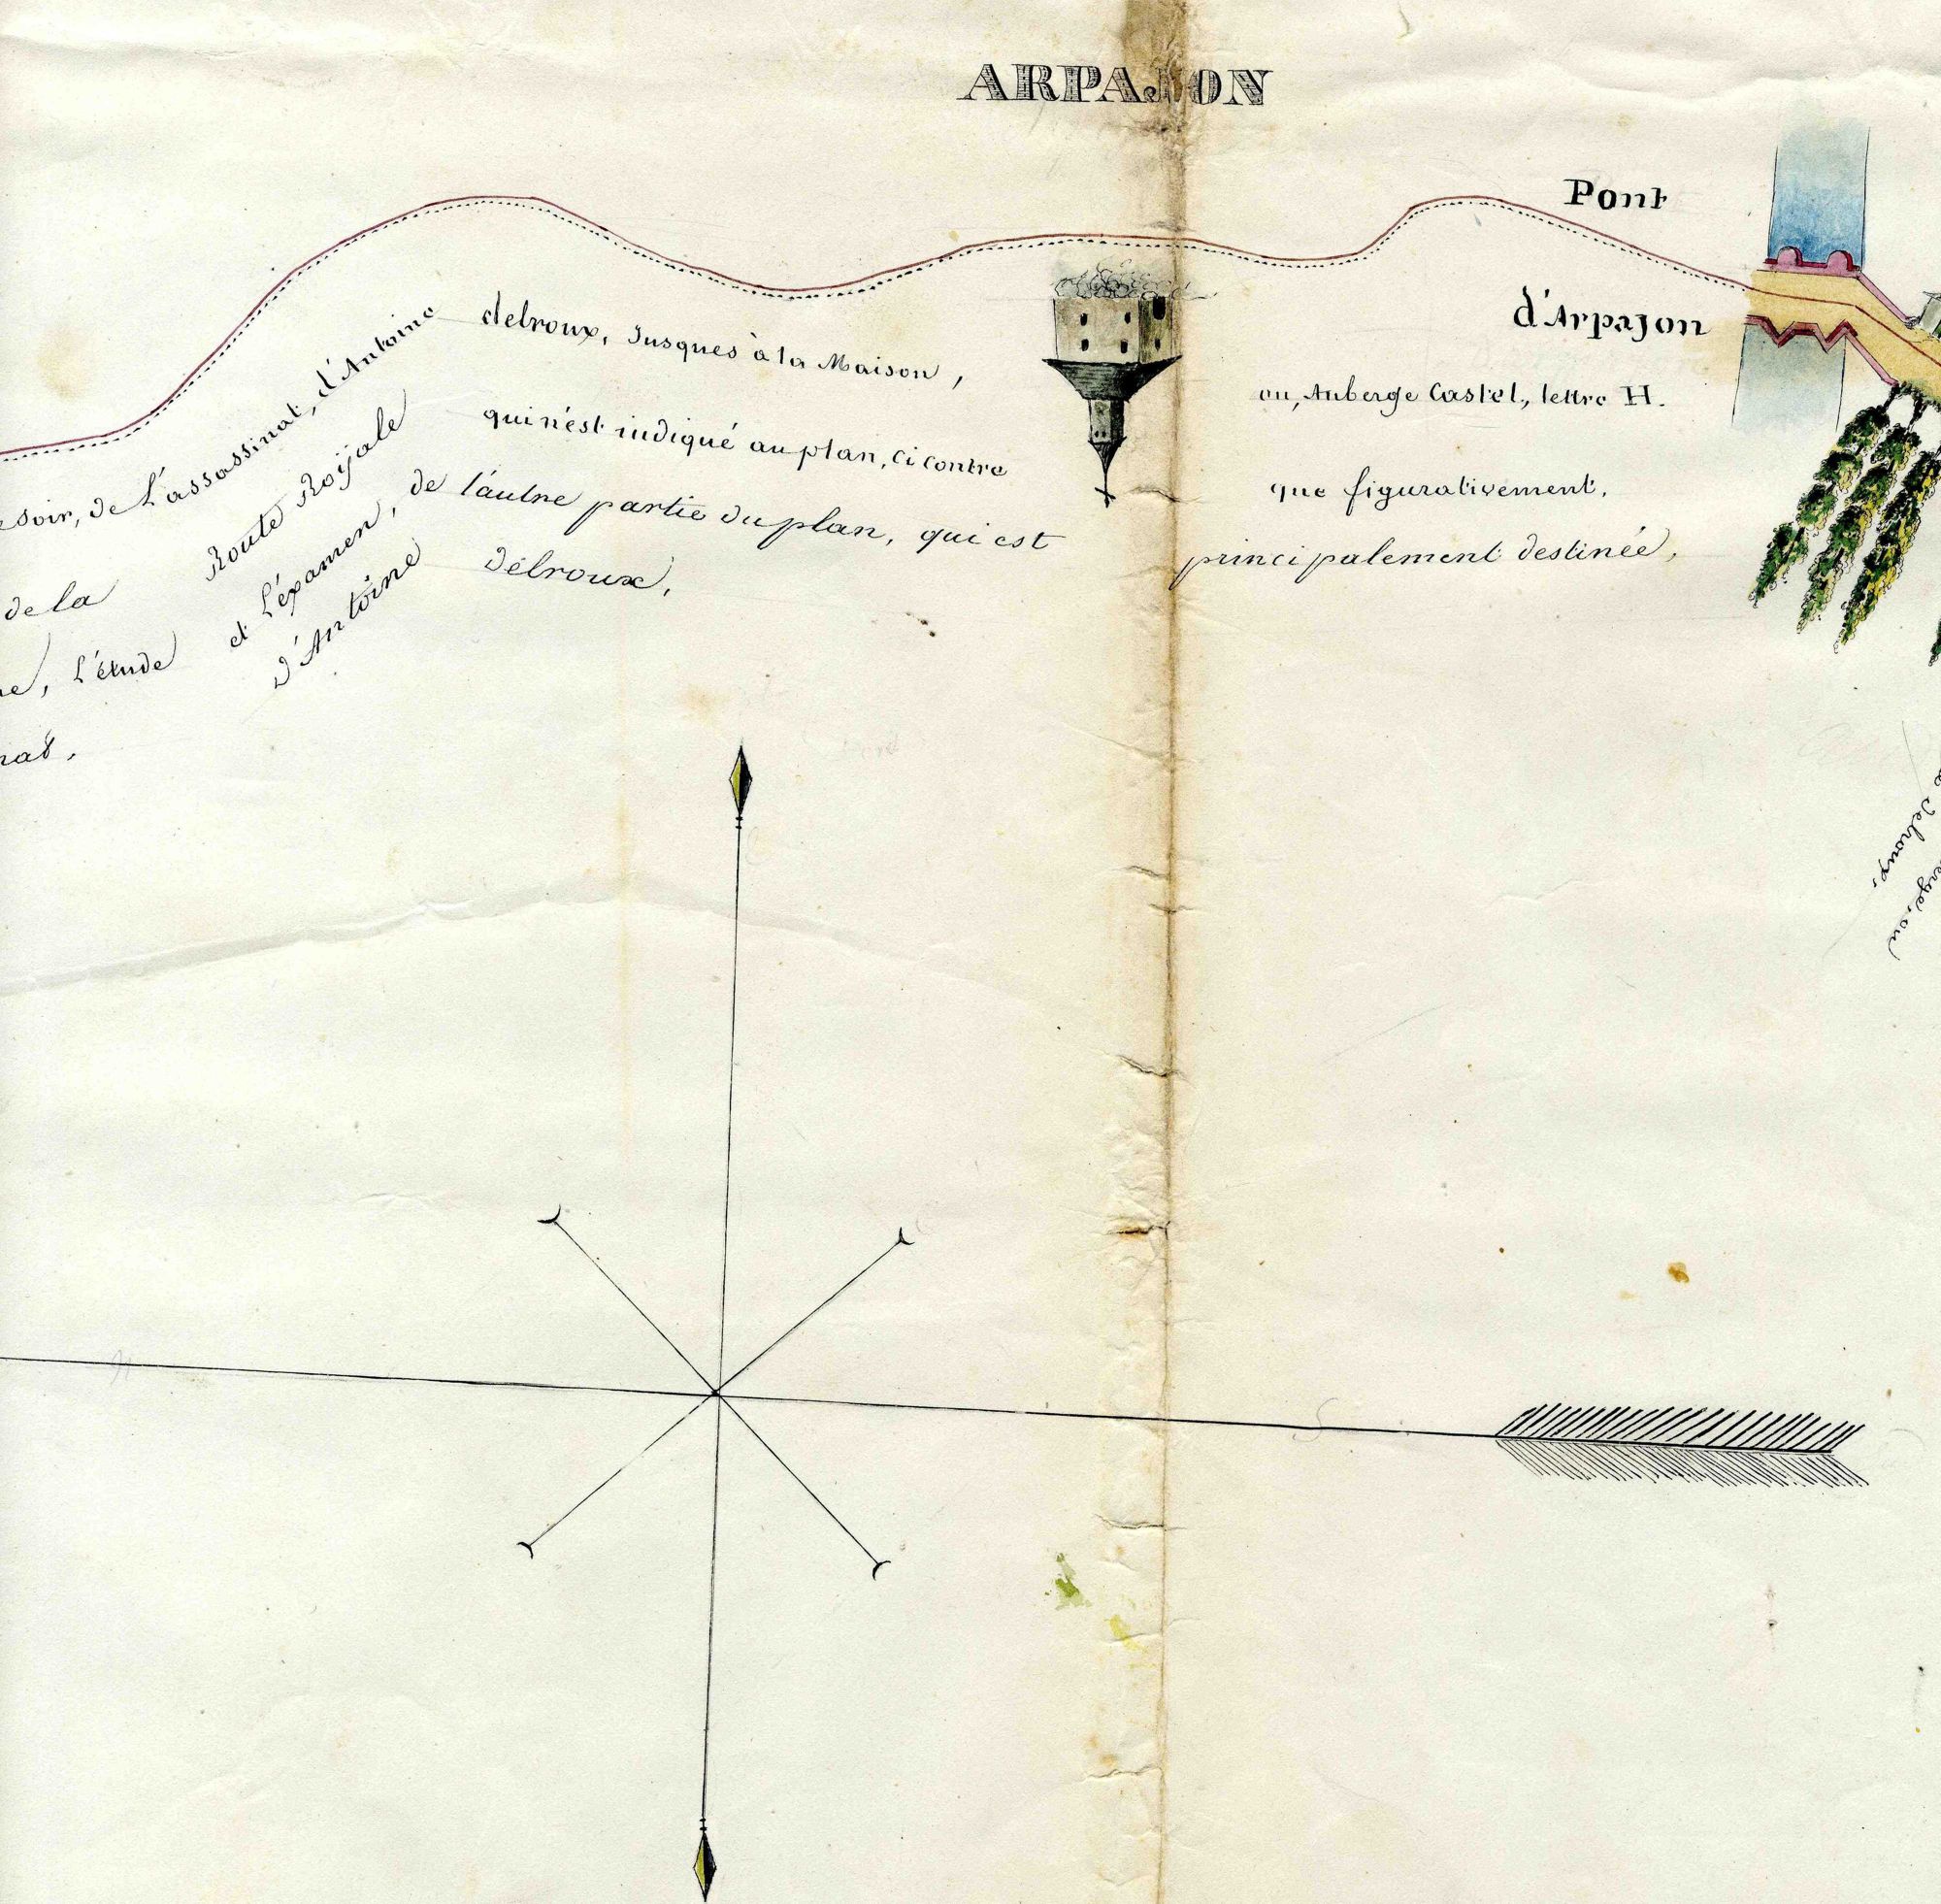 ARPAJON
Pont
d'Arpajon
soir, de L'assassinat, d'Antoine delroux, Jusques à la Maison, ou, Auberge Castel, lettre H.
de la Route Roÿale qui n'est indiqué au plan, ci contre que figurativement,
L'étude et L'éxamen, de l'autre partie du plan, qui est principalement destinée,
d'Antoine Delroux,
Delroux,
ou